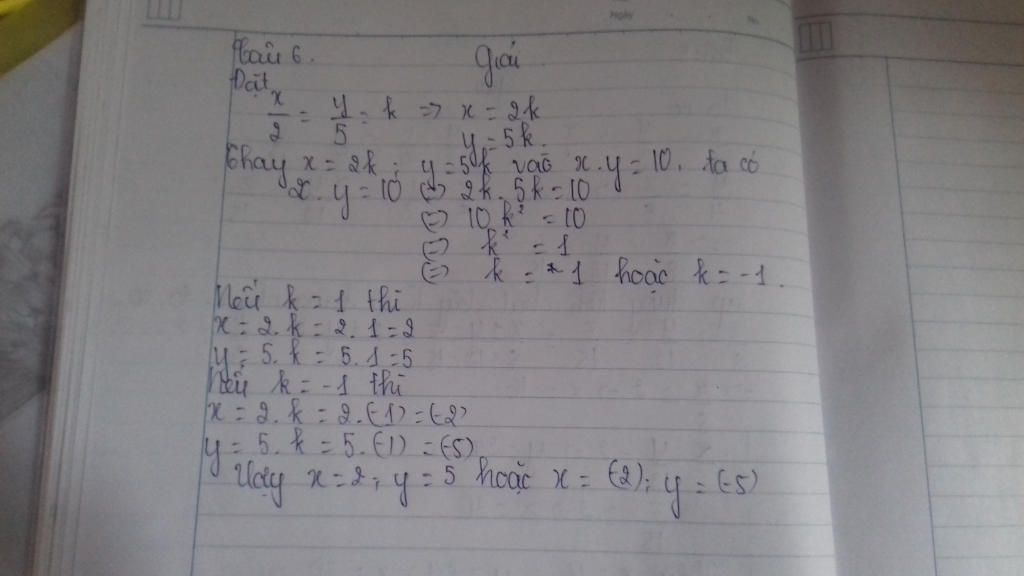 Ngày No.
Câu 6. Giải
Đặt
x/2 = y/5 = k => x = 2k
y = 5k.
Thay x = 2k ; y = 5k vào x.y = 10. ta có
x. y = 10 (=) 2k. 5k = 10
(=) 10 k² = 10
(=) k² = 1
(=) k = 1 hoặc k = -1.
Nếu k = 1 thì
x = 2. k = 2. 1 = 2
y = 5. k = 5. 1 = 5
Nếu k = -1 thì
x = 2. k = 2. (-1) = (-2)
y = 5. k = 5. (-1) = (-5)
Vậy x = 2 ; y = 5 hoặc x = (-2) ; y = (-5)